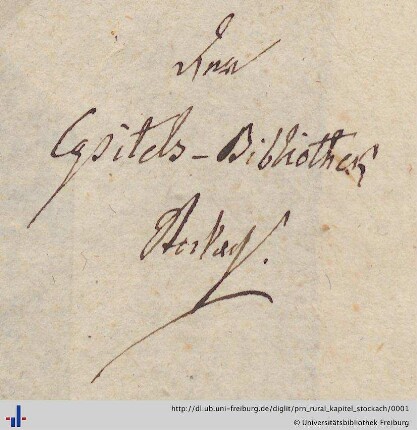 Der
Capitels-Bibliothek
Stockach.
http://dl.ub.uni-freiburg.de/diglit/prn_rural_kapitel_stockach/0001
© Universitätsbibliothek Freiburg